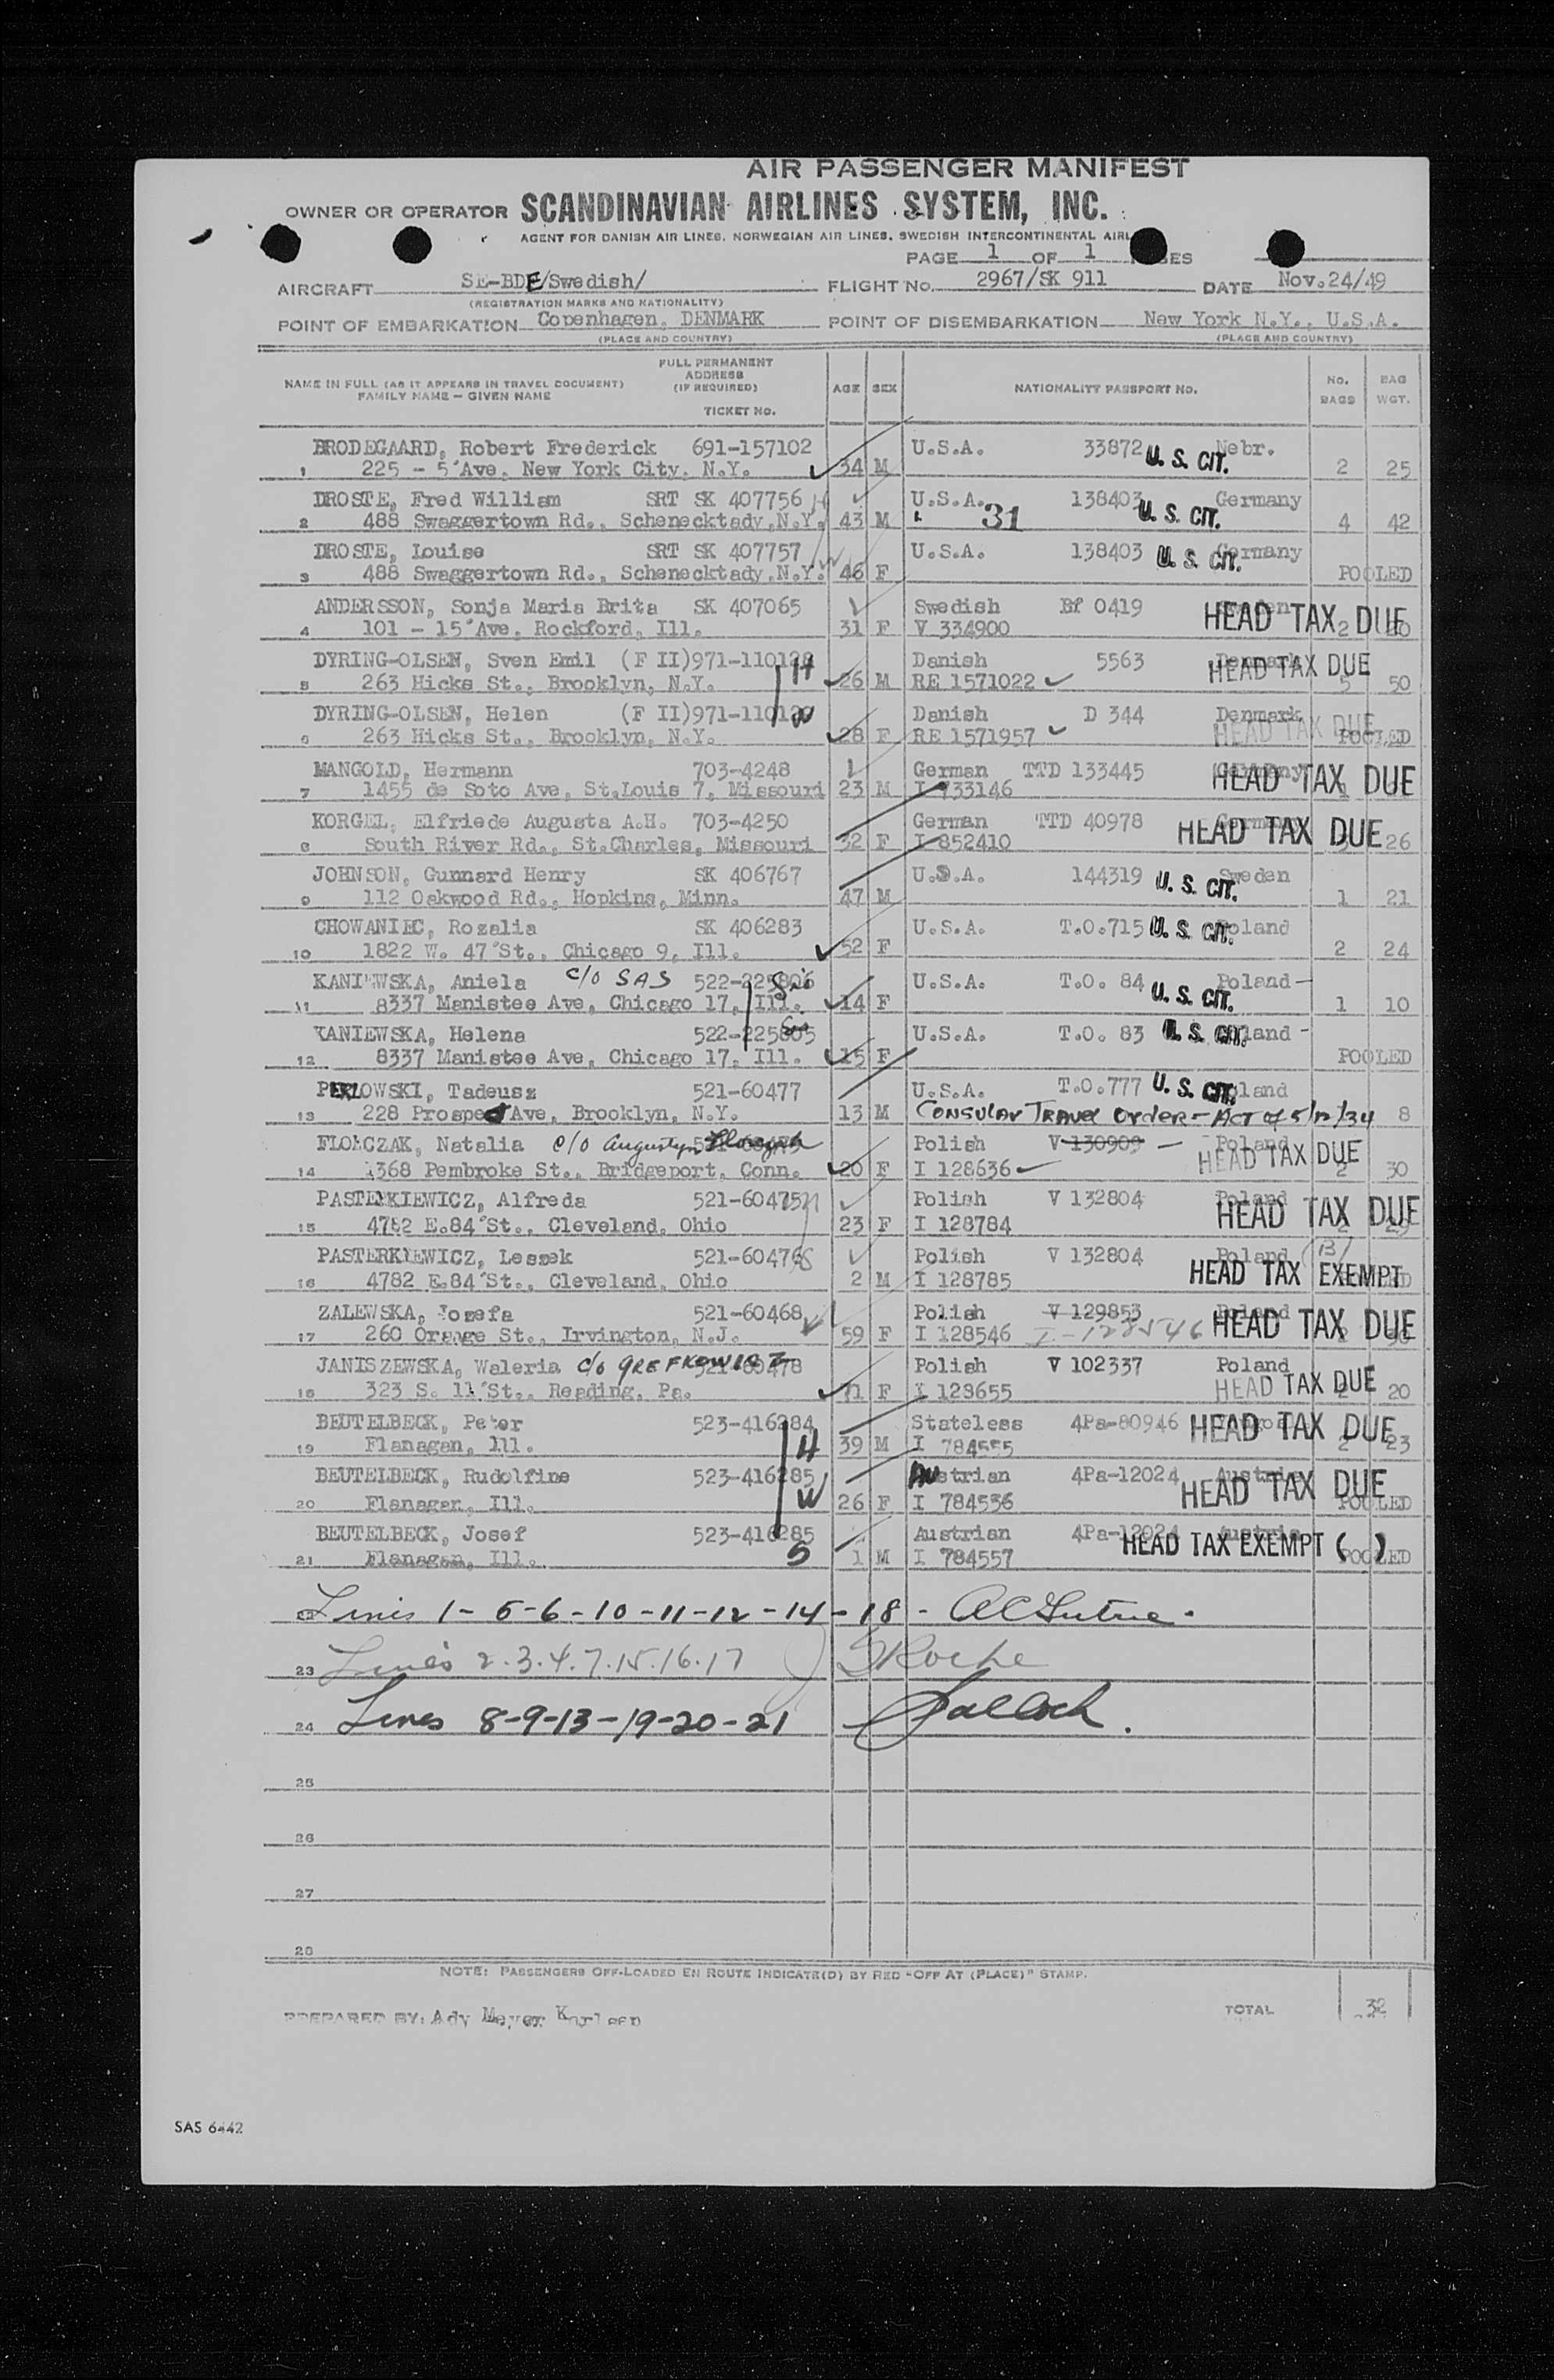 AIR PASSENGER MANIFEST
OWNER OR OPERATOR SCANDINAVIAN AIRLINES SYSTEM, INC.
AGENT FOR DANISH AIR LINES, NORWEGIAN AIR LINES, SWEDISH INTERCONTINENTAL AIRL
PAGE 1 OF 1 ES
AIRCRAFT SE-BDE/Swedish/ FLIGHT No. 2967/SK 911 DATE Nov.24/49
(REGISTRATION MARKS AND NATIONALITY)
POINT OF EMBARKATION Copenhagen, DENMARK POINT OF DISEMBARKATION New York N.Y., U.S.A.
(PLACE AND COUNTRY) (PLACE AND COUNTRY)
FULL PERMANENT
ADDRESS
(IF REQUIRED)
NAME IN FULL (AS IT APPEARS IN TRAVEL DOCUMENT)
FAMILY NAME — GIVEN NAME
TICKET No.
AGE SEX NATIONALITY PASSPORT No. No. BAGS BAG WGT.
BRODEGAARD, Robert Frederick 691-157102 U.S.A. 33872 U. S. CIT. Nebr.
1 225 - 5'Ave, New York City, N.Y. 34 M 2 25
DROSTE, Fred William SRT SK 407756 H U.S.A. 138403 U. S. CIT. Germany
2 488 Swaggertown Rd., Schenecktady,N.Y. 43 M 31 4 42
DROSTE, Louise SRT SK 407757 W U.S.A. 138403 U. S. CIT. Germany
3 488 Swaggertown Rd., Schenecktady,N.Y. 46 F POOLED
ANDERSSON, Sonja Maria Brita SK 407065 Swedish Bf 0419 HEAD TAX DUE
4 101 - 15'Ave, Rockford, Ill. 31 F V 334900 2
DYRING-OLSEN, Sven Emil (F II)971-110128 H Danish 5563 Denmark HEAD TAX DUE
5 263 Hicks St., Brooklyn, N.Y. 26 M RE 1571022 5 50
DYRING-OLSEN, Helen (F II)971-110129 W Danish D 344 Denmark HEAD TAX DUE
6 263 Hicks St., Brooklyn, N.Y. 28 F RE 1571957 POOLED
MANGOLD, Hermann 703-4248 German TTD 133445 Germany HEAD TAX DUE
7 1455 de Soto Ave, St.Louis 7, Missouri 23 M I 733146
KORGEL, Elfriede Augusta A.H. 703-4250 German TTD 40978 Germany HEAD TAX DUE
8 South River Rd., St.Charles, Missouri 32 F I 852410 26
JOHNSON, Gunnard Henry SK 406767 U.S.A. 144319 U. S. CIT. Sweden
9 112 Oakwood Rd., Hopkins, Minn. 47 M 1 21
CHOWANIEC, Rozalia SK 406283 U.S.A. T.O.715 U. S. CIT. Poland
10 1822 W. 47'St., Chicago 9, Ill. 52 F 2 24
KANIEWSKA, Aniela c/o SAS 522-225806 Sis U.S.A. T.O. 84 U. S. CIT. Poland -
11 8337 Manistee Ave, Chicago 17, Ill. 14 F 1 10
KANIEWSKA, Helena 522-225805 U.S.A. T.O. 83 U. S. CIT. Poland -
12 8337 Manistee Ave, Chicago 17, Ill. 15 F POOLED
PERLOWSKI, Tadeusz 521-60477 U.S.A. T.O.777 U. S. CIT. Poland
13 228 Prospect Ave, Brooklyn, N.Y. 13 M Consular Travel Order - Act of 5/12/34 8
FLORCZAK, Natalia c/o Augustyn Florczak Polish V 130909 — Poland HEAD TAX DUE
14 1368 Pembroke St., Bridgeport, Conn. 20 F I 128636 2 30
PASTERKIEWICZ, Alfreda 521-60475 M Polish V 132804 Poland HEAD TAX DUE
15 4782 E.84'St., Cleveland, Ohio 23 F I 128784
PASTERKIEWICZ, Leszek 521-60476 S Polish V 132804 Poland (B) HEAD TAX EXEMPT
16 4782 E.84'St., Cleveland, Ohio 2 M I 128785
ZALEWSKA, Jozefa 521-60468 Polish V 129853 Poland HEAD TAX DUE
17 260 Orange St., Irvington, N.J. 59 F I 128546 I-128546
JANISZEWSKA, Waleria c/o GREFKOWICZ 521-60478 Polish V 102337 Poland HEAD TAX DUE
18 323 S. 11'St., Reading, Pa. 71 F I 128655 2 20
BEUTELBECK, Peter 523-416284 H Stateless 4Pa-80946 HEAD TAX DUE
19 Flanagan, Ill. 39 M I 784555 2 23
BEUTELBECK, Rudolfine 523-416285 W Austrian 4Pa-12024 Austria HEAD TAX DUE
20 Flanagan, Ill. 26 F I 784556 POOLED
BEUTELBECK, Josef 523-416285 S Austrian 4Pa-12024 Austria HEAD TAX EXEMPT ( )
21 Flanagan, Ill. 1 M I 784557 POOLED
Lines 1-5-6-10-11-12-14-18 -
23 Lines 2.3.4.7.15.16.17 Roche
24 Lines 8-9-13-19-20-21
25
26
27
28
NOTE: PASSENGERS OFF-LOADED EN ROUTE INDICATE(D) BY RED "OFF AT (PLACE)" STAMP.
PREPARED BY: Ady Meyer Karlsen TOTAL 32
SAS 6442